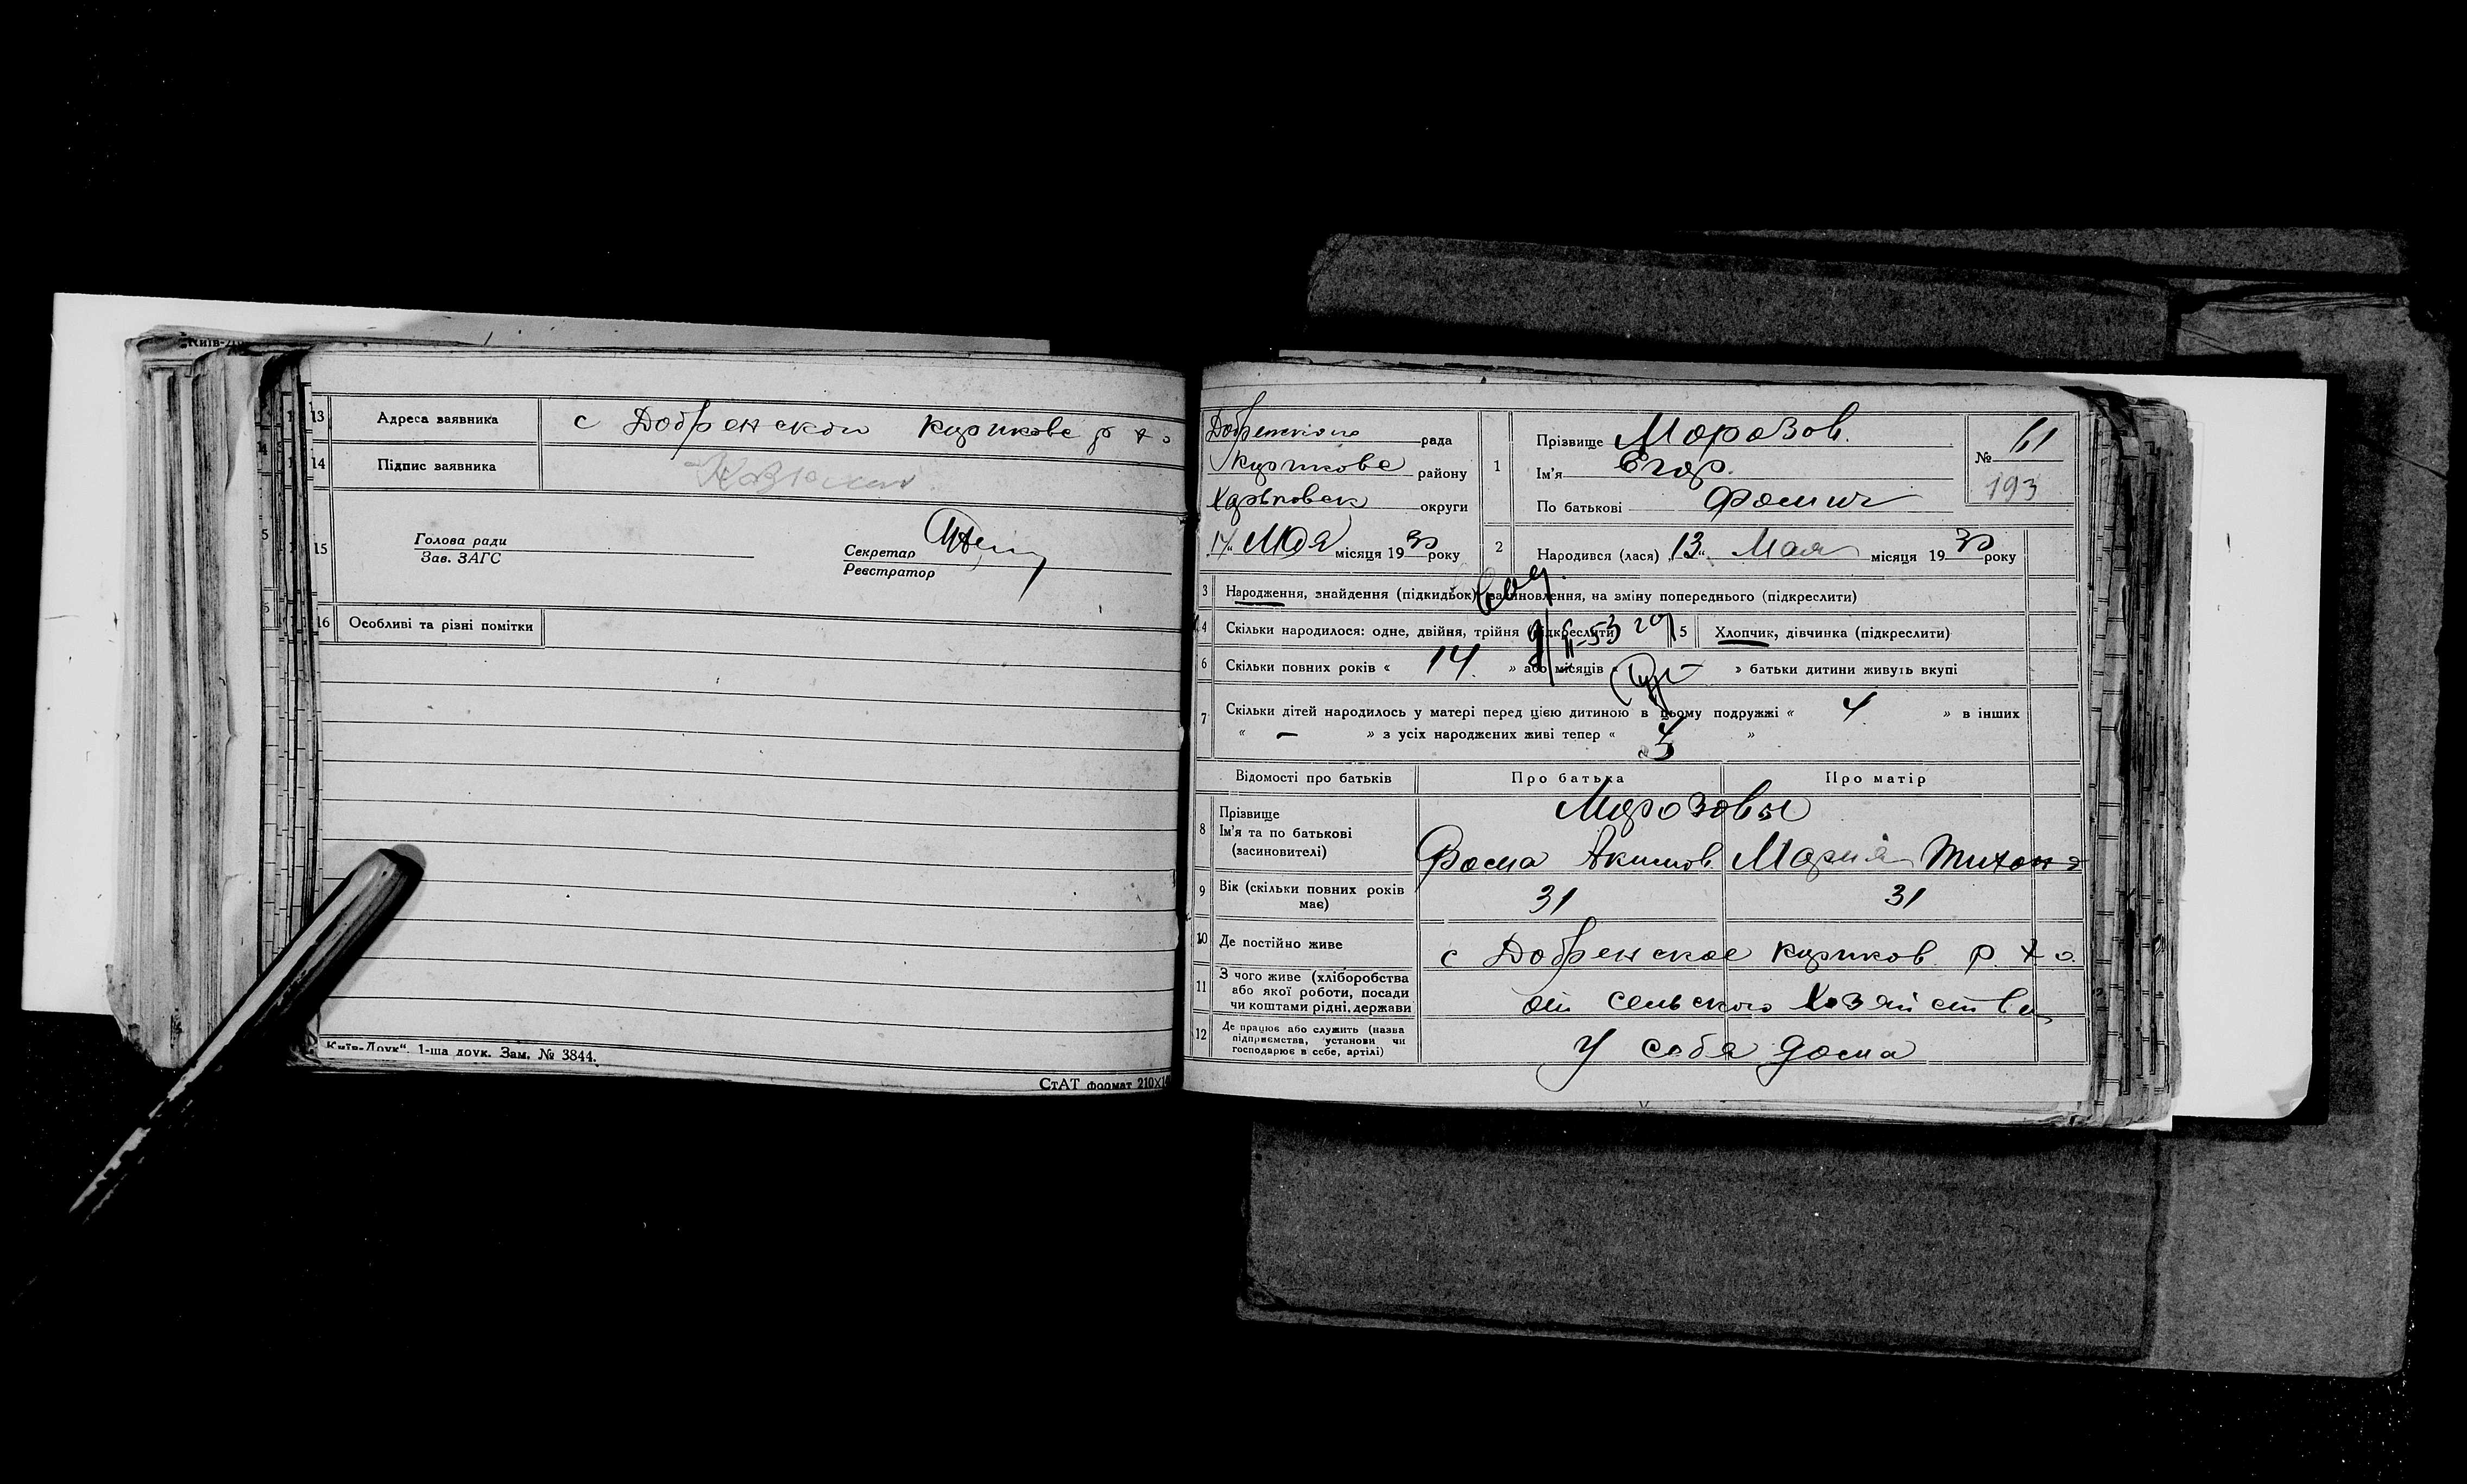 Київ-Д
13 Адреса заявника с Добренской Куриковс р Х о
14 Підпис заявника
15 Голова ради
Зав. ЗАГС
Секретар
Реєстратор
16 Особливі та різні помітки
Київ-Друк". 1-ша друк. Зам. № 3844.
СтАТ формат 210×1
рада
Куриковс району
Харьковск округи
Мая місяця 1930 року
1 Прізвище Морозов.
Ім'я Егор.
По батькові Фомич
№ 61
193
2 Народився (лася) „13“ Мая місяця 1930 року
3 Народження, знайдення (підкидьок) засиновлення, на зміну попереднього (підкреслити)
4 Скільки народилося: одне, двійня, трійня (підкреслити)
5 Хлопчик, дівчинка (підкреслити)
6 Скільки повних років « 14 » або місяців « » батьки дитини живуть вкупі
7 Скільки дітей народилось у матері перед цією дитиною в цьому подружжі « 4 » в інших
« — » з усіх народжених живі тепер « »
Відомості про батьків Про батька Про матір
8 Прізвище
Ім'я та по батькові
(засиновителі)
Морозовы
Фома Акимов. Мария Тихон
9 Вік (скільки повних років має) 31 31
10 Де постійно живе с Добренское Куриков. р. Х о.
11 З чого живе (хліборобства
або якої роботи, посади
чи коштами рідні, держави
от сельского Хозяйства
12 Де працює або служить (назва
підприємства, установи чи
господарює в себе, артілі)
У себя дома